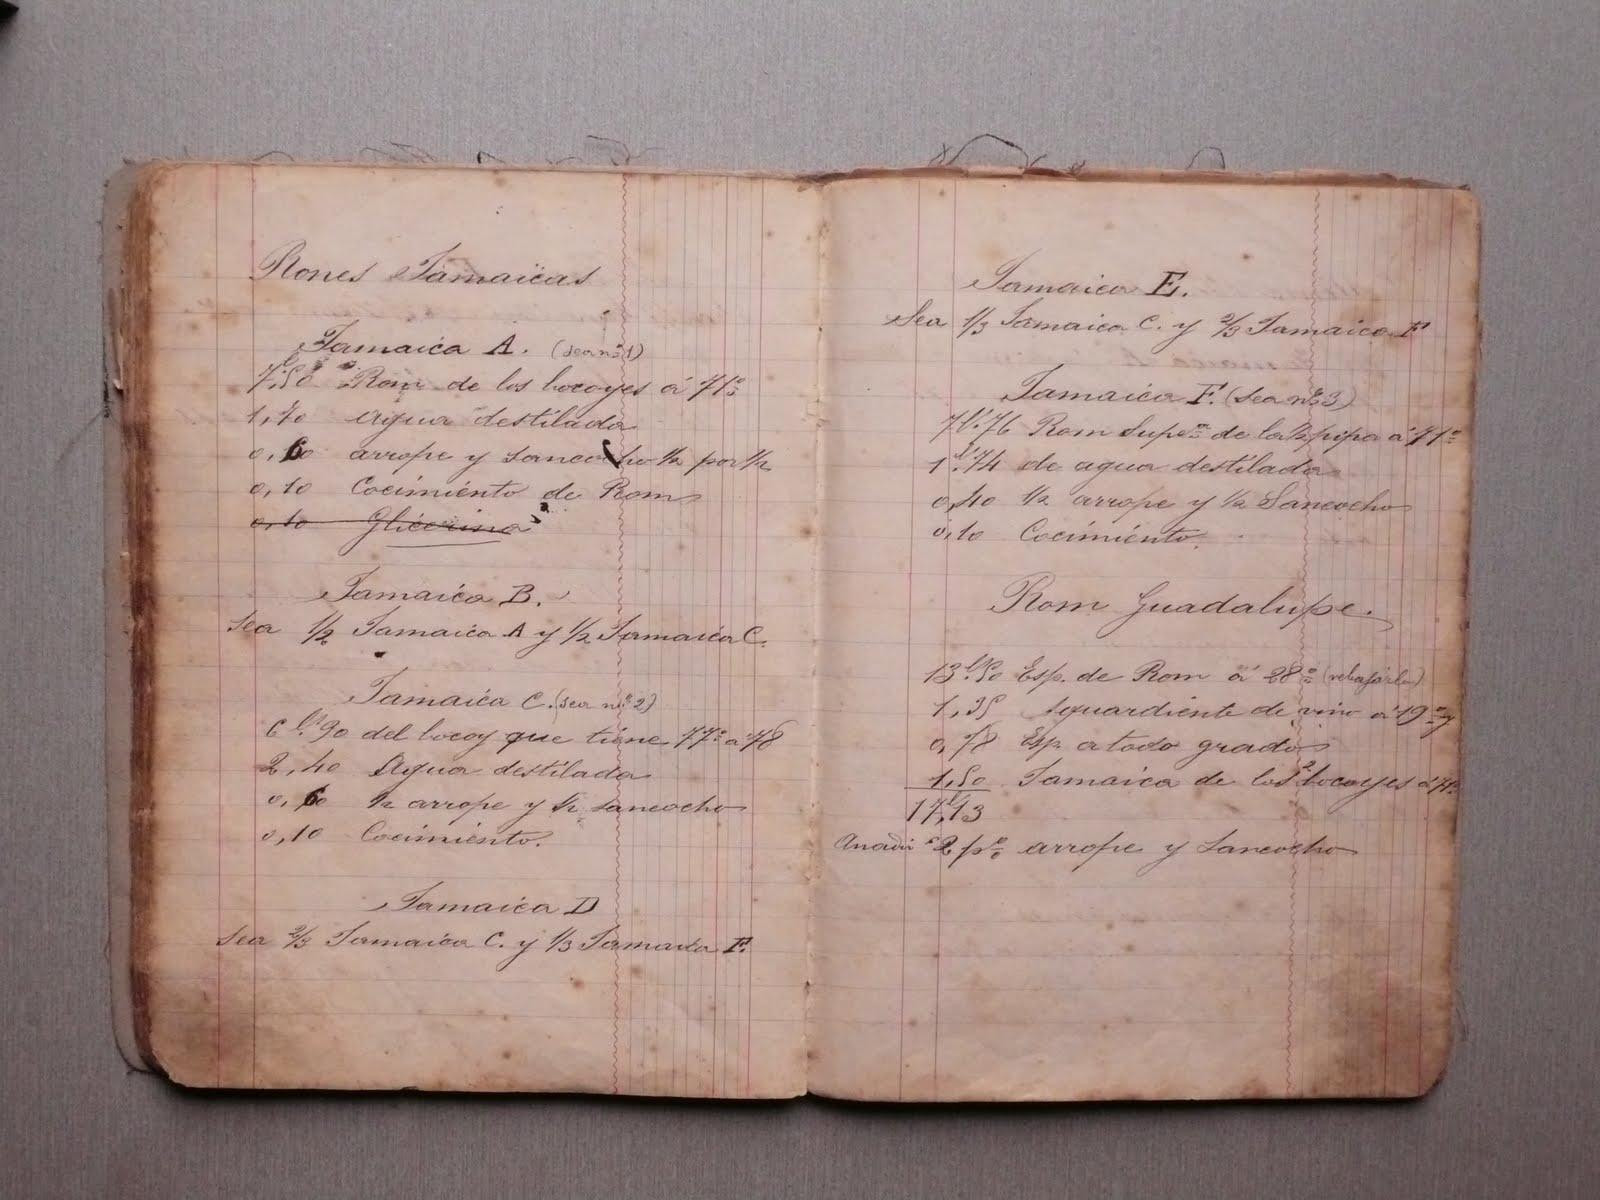 Rones Jamaicas
Jamaica A. (sea nº 1)
7,50 Rom de los bocoyes á 71º
1,70 agua destilada
0,60 arrope y sancocho ½ por ½
0,10 Cocimiento de Rom
0,10 Glicerina
Jamaica B.
Sea ½ Jamaica A y ½ Jamaica C.
Jamaica C. (sea nº 2)
6 ls 90 del bocoy que tiene 77º a 78
2,40 Agua destilada
0,60 ½ arrope y ½ sancocho
0,10 Cocimiento.
Jamaica D
Sea ⅔ Jamaica C. y ⅓ Jamaica F.
Jamaica E.
Sea ⅓ Jamaica C. y ⅔ Jamaica F
Jamaica F. (Sea nº 3)
7 l. 76 Rom Supeor de la ½ pipa á 71º
1 l. 74 de agua destilada
0,40 ½ arrope y ½ Sancocho
0,10 Cocimiento.
Rom Guadalupe.
13 l. 50 Esp. de Rom á 28º (rebajarlo)
1,35 Aguardiente de vino á 19º y
0,78 Esp. a todo grado
1,50 Jamaica de los 2 bocoyes á 71º
17,13
Anadir 2 p% arrope y sancocho